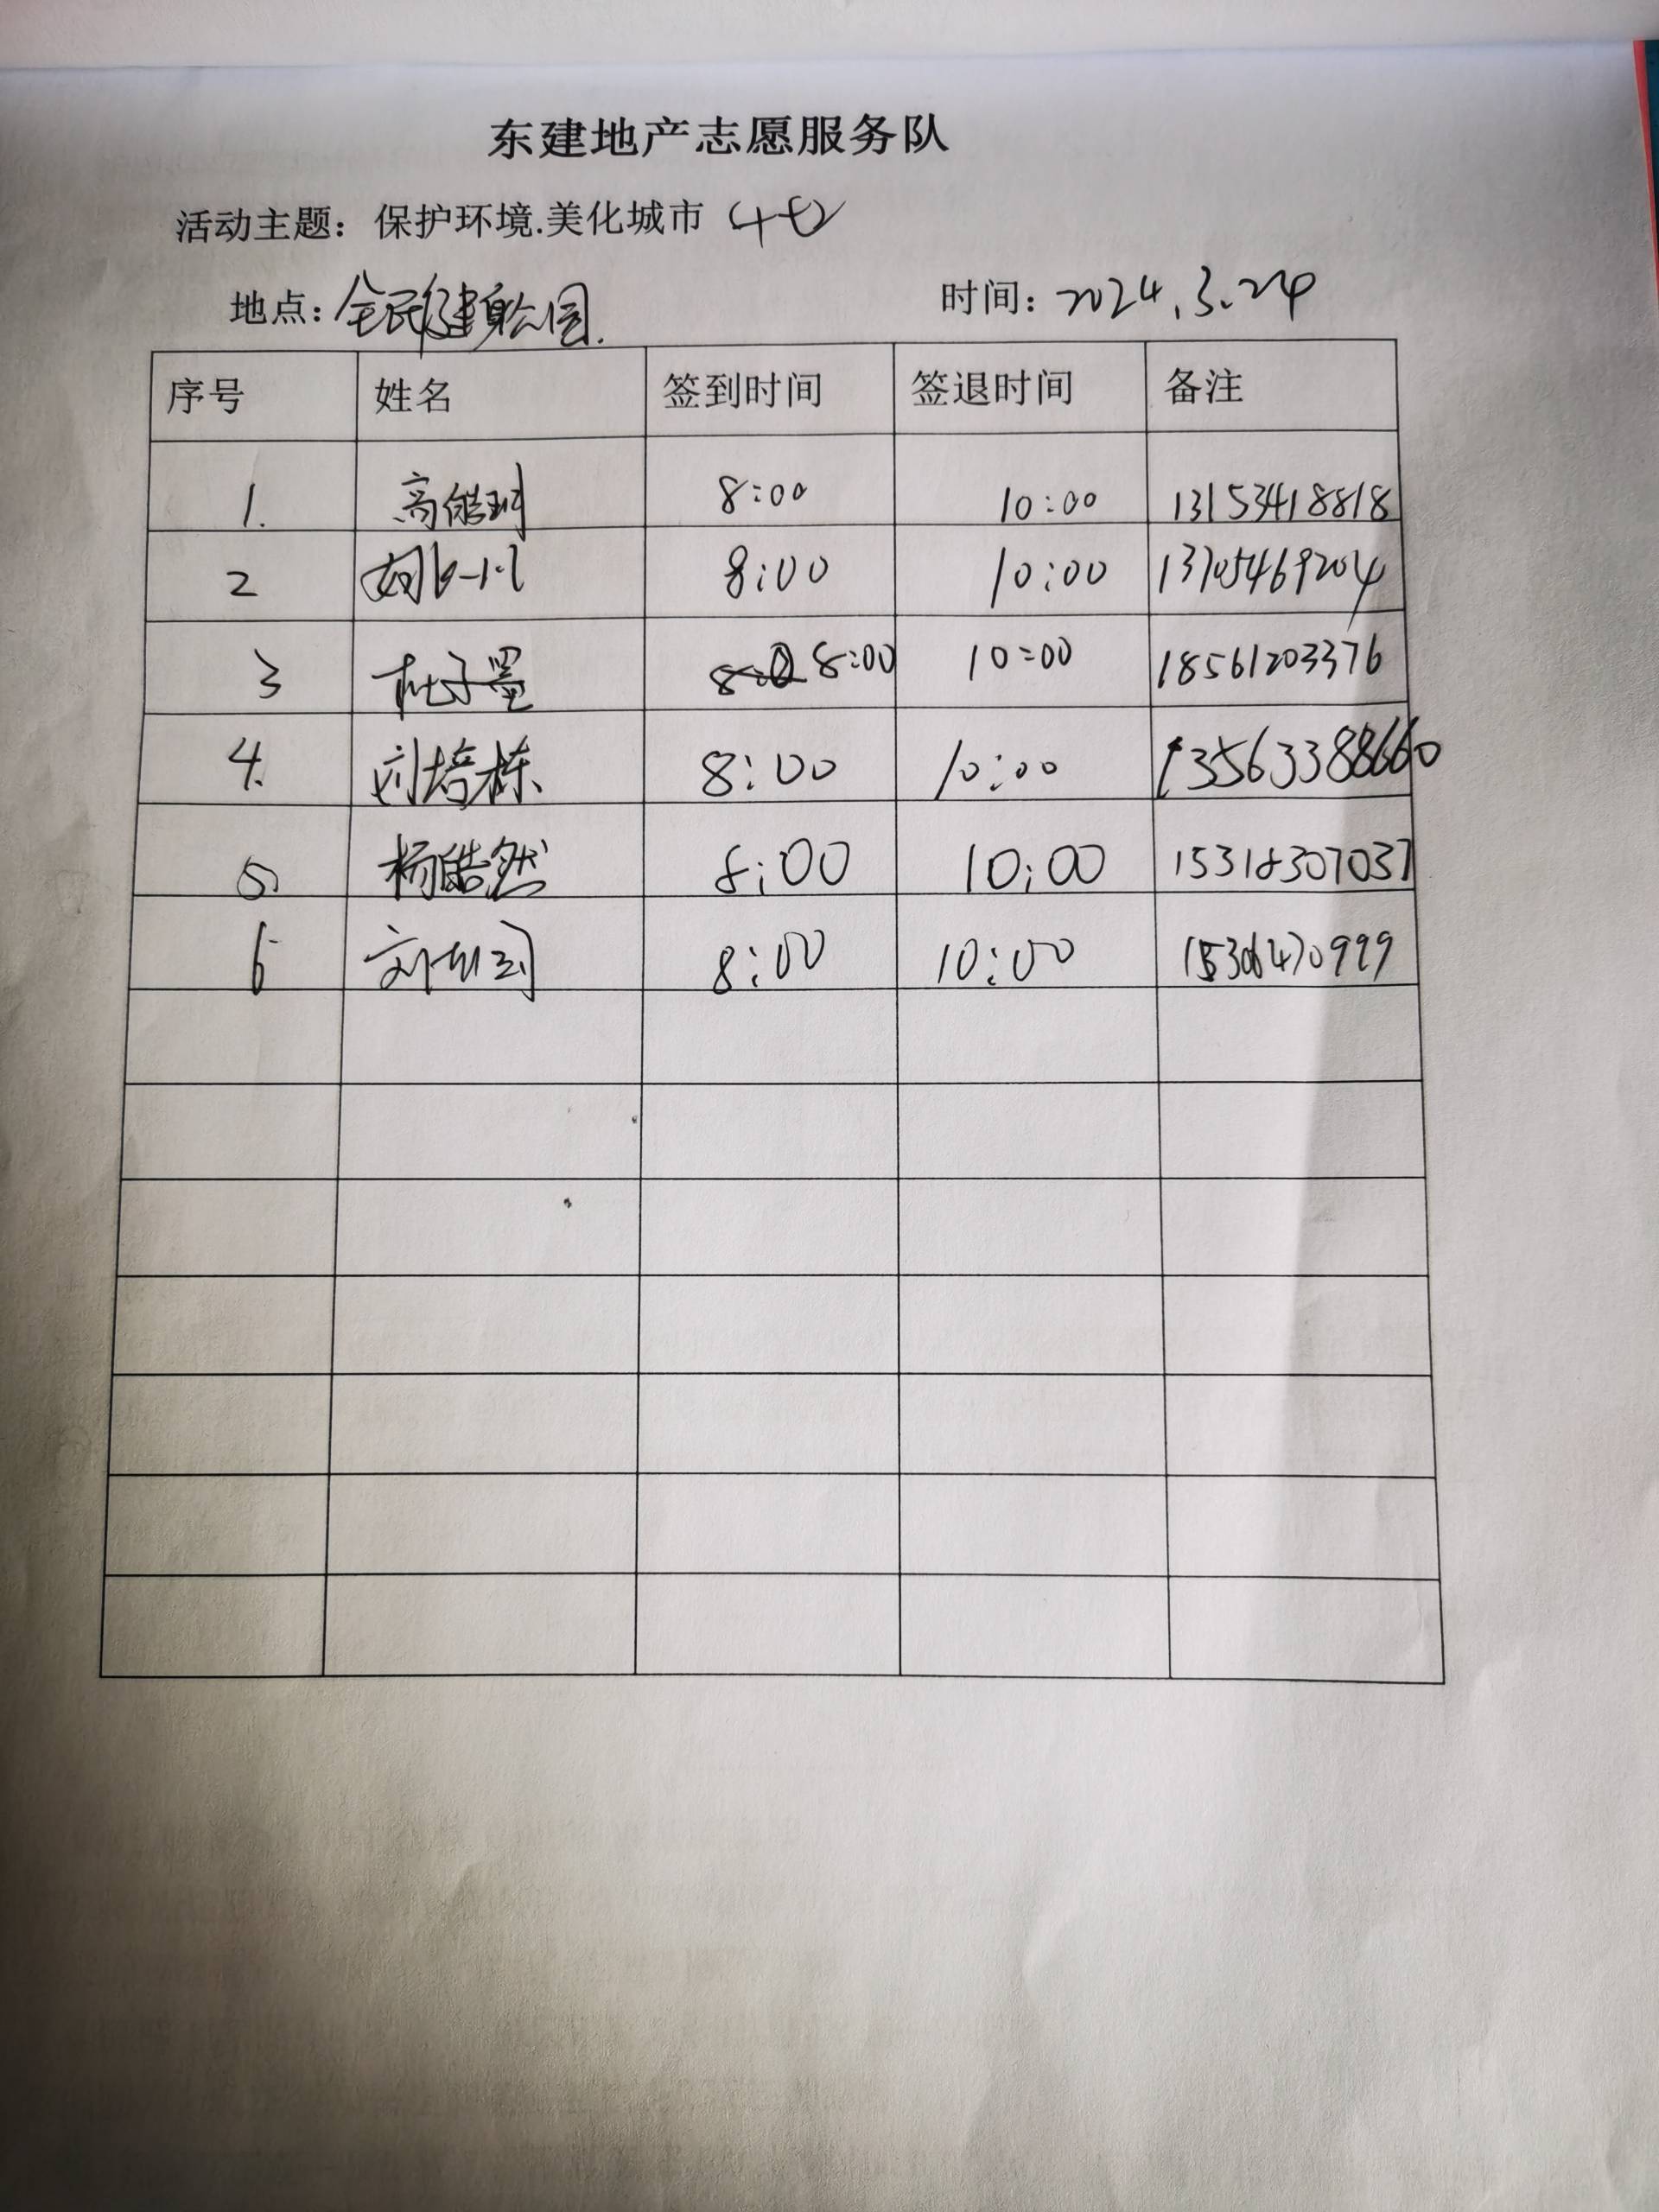 东建地产志愿服务队
活动主题：保护环境.美化城市（十七）
地点：全民健身公园. 时间：2024.3.24
序号 姓名 签到时间 签退时间 备注
1. 高皓玥 8:00 10:00 13153418818
2 8:00 10:00 13705469204
3 杜子墨 8:00 10:00 18561203376
4. 刘培栋 8:00 10:00 13563388660
5 杨皓然 8:00 10:00 15318307037
6 8:00 10:00 15306470999